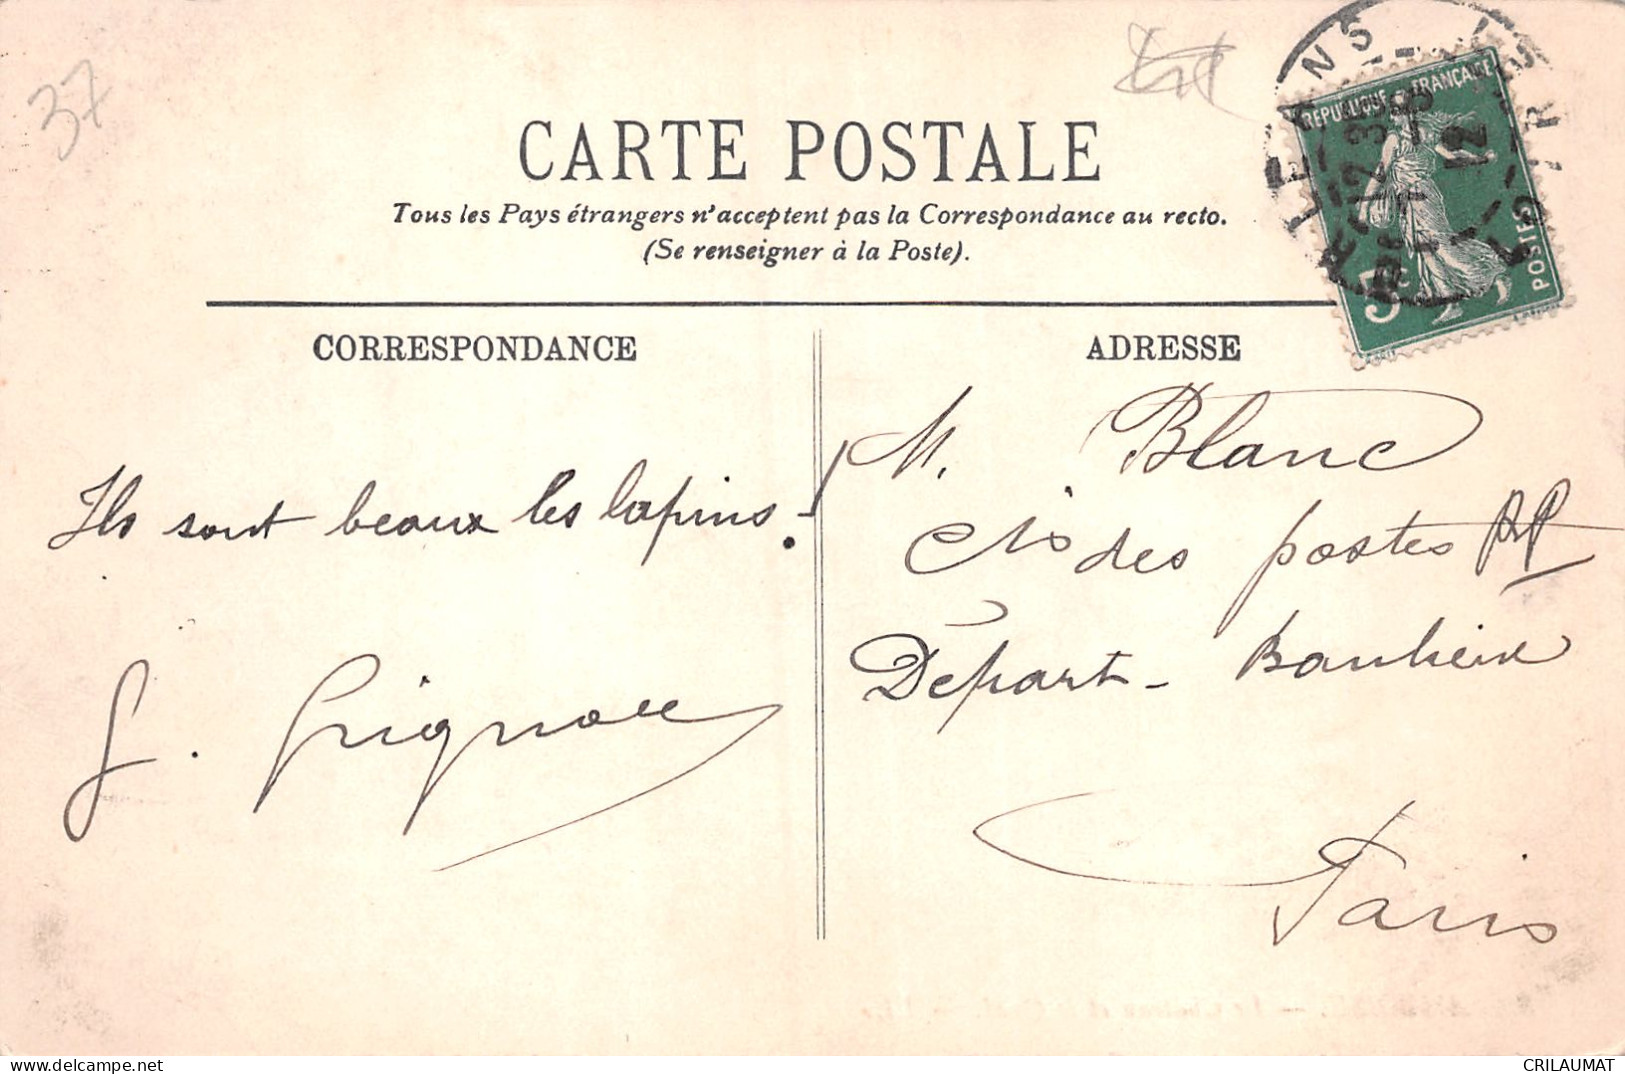 37
CARTE POSTALE
Tous les Pays étrangers n'acceptent pas la Correspondance au recto.
(Se renseigner à la Poste).
REPUBLIQUE FRANÇAISE
POSTES
5c
CORRESPONDANCE
Ils sont beaux les lapins !
ADRESSE
M. Blanc
Cis des postes RP
Départ - Banlieue
Paris
CRILAUMAT